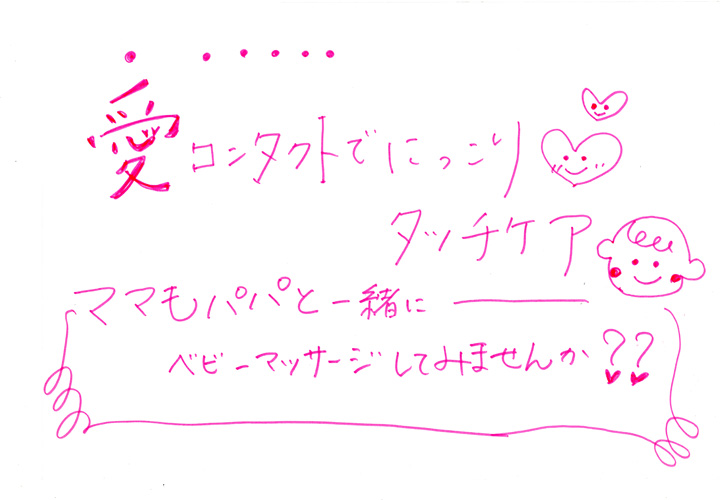 愛コンタクトでにっこり
タッチケア
ママもパパと一緒に
ベビーマッサージしてみませんか??